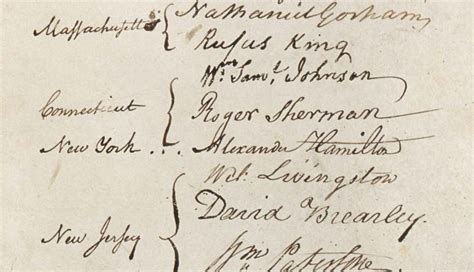 Massachusetts { Nathaniel Gorham
Rufus King
Connecticut { Wm. Saml. Johnson
Roger Sherman
New York . . . Alexander Hamilton
New Jersey { Wil: Livingston
David Brearley.
Wm. Paterson